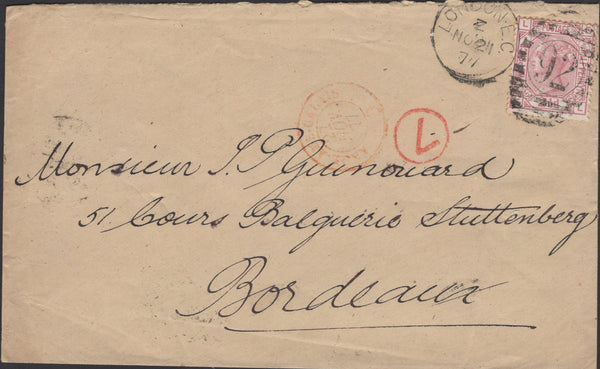 LONDON.E.C
Z
NO 21
77
92
L
1
Monsieur J. P. Guinouard
51 Cours Balguerie Stuttenberg
Bordeaux